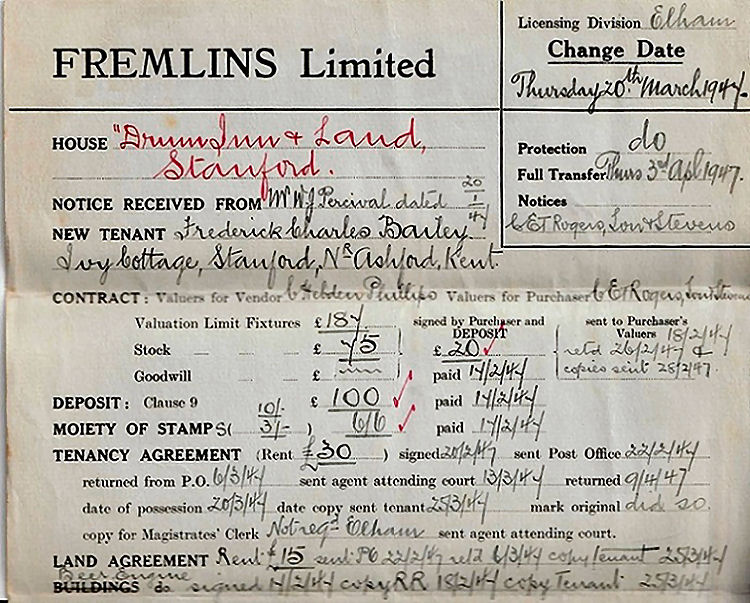 FREMLINS Limited
Licensing Division Elham
Change Date
Thursday 20th March 1947.
Protection do
Full Transfer Thurs 3rd Apl 1947.
Notices
C E T Rogers, Son & Stevens
HOUSE "Drum Inn & Land,
Stanford.
NOTICE RECEIVED FROM Mr W J Percival dated 20/1/47
NEW TENANT Frederick Charles Bailey
Ivy Cottage, Stanford, Nr Ashford, Kent.
CONTRACT: Valuers for Vendor C Hebden Phillips Valuers for Purchaser C E T Rogers, Son & Stevens
Valuation Limit Fixtures £ 187 signed by Purchaser and DEPOSIT sent to Purchaser's Valuers 18/2/47
Stock £ 75 £ 20 retd 26/2/47 &
Goodwill £ paid 14/2/47 copies sent 28/2/47.
DEPOSIT: Clause 9 £ 100 paid 14/2/47
10/-
MOIETY OF STAMPS ( 3/- ) 6/6 paid 14/2/47
TENANCY AGREEMENT (Rent £30 ) signed 20/2/47 sent Post Office 22/2/47
returned from P.O. 6/3/47 sent agent attending court 13/3/47 returned 9/4/47
date of possession 20/3/47 date copy sent tenant 25/3/47 mark original did so.
copy for Magistrates' Clerk Not reqd Elham sent agent attending court.
LAND AGREEMENT Rent £15 sent PO 22/2/47 retd 6/3/47 copy tenant 25/3/47
Beer Engine
BUILDINGS do signed 14/2/47 copy RR 18/2/47 copy Tenant 25/3/47